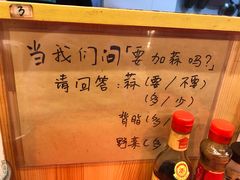 3
当我们问「要加蒜吗?」
请回答:蒜(要/不要)
(多/少)
背脂(多/
野菜(多